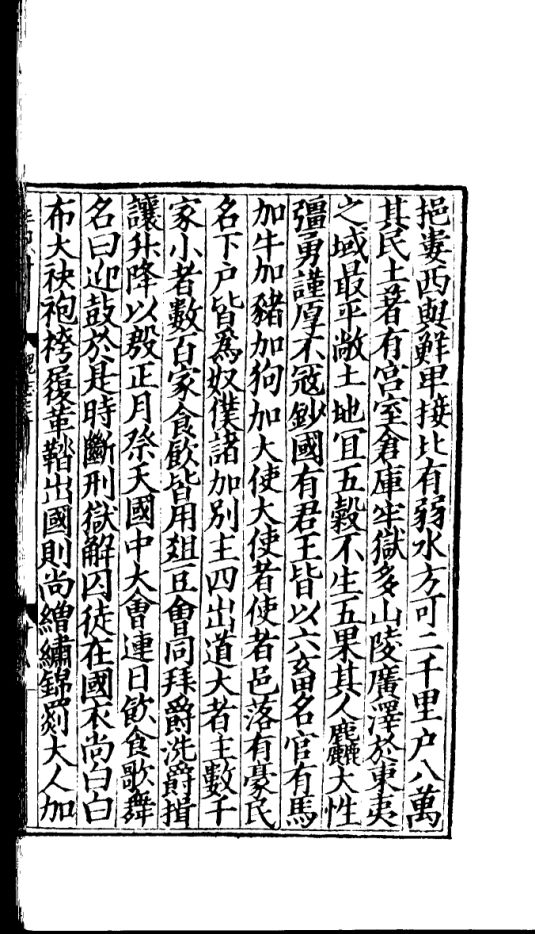 挹婁西與鮮卑接北有弱水方可二千里户八萬
其民土著有宫室倉庫牢獄多山陵廣澤於東夷
之域最平敞土地冝五穀不生五果其人麤大性
彊勇謹厚不寇鈔國有君王皆以六畜名官有馬
加牛加豬加狗加大使大使者使者邑落有豪民
名下户皆爲奴僕諸加別主四出道大者主數千
家小者數百家食飲皆用爼豆會同拜爵洗爵揖
讓升降以殷正月祭天國中大會連日飲食歌舞
名曰迎鼓於是時斷刑獄解囚徒在國衣尚白白
布大袂袍袴履革鞜出國則尚繒繡錦罽大人加